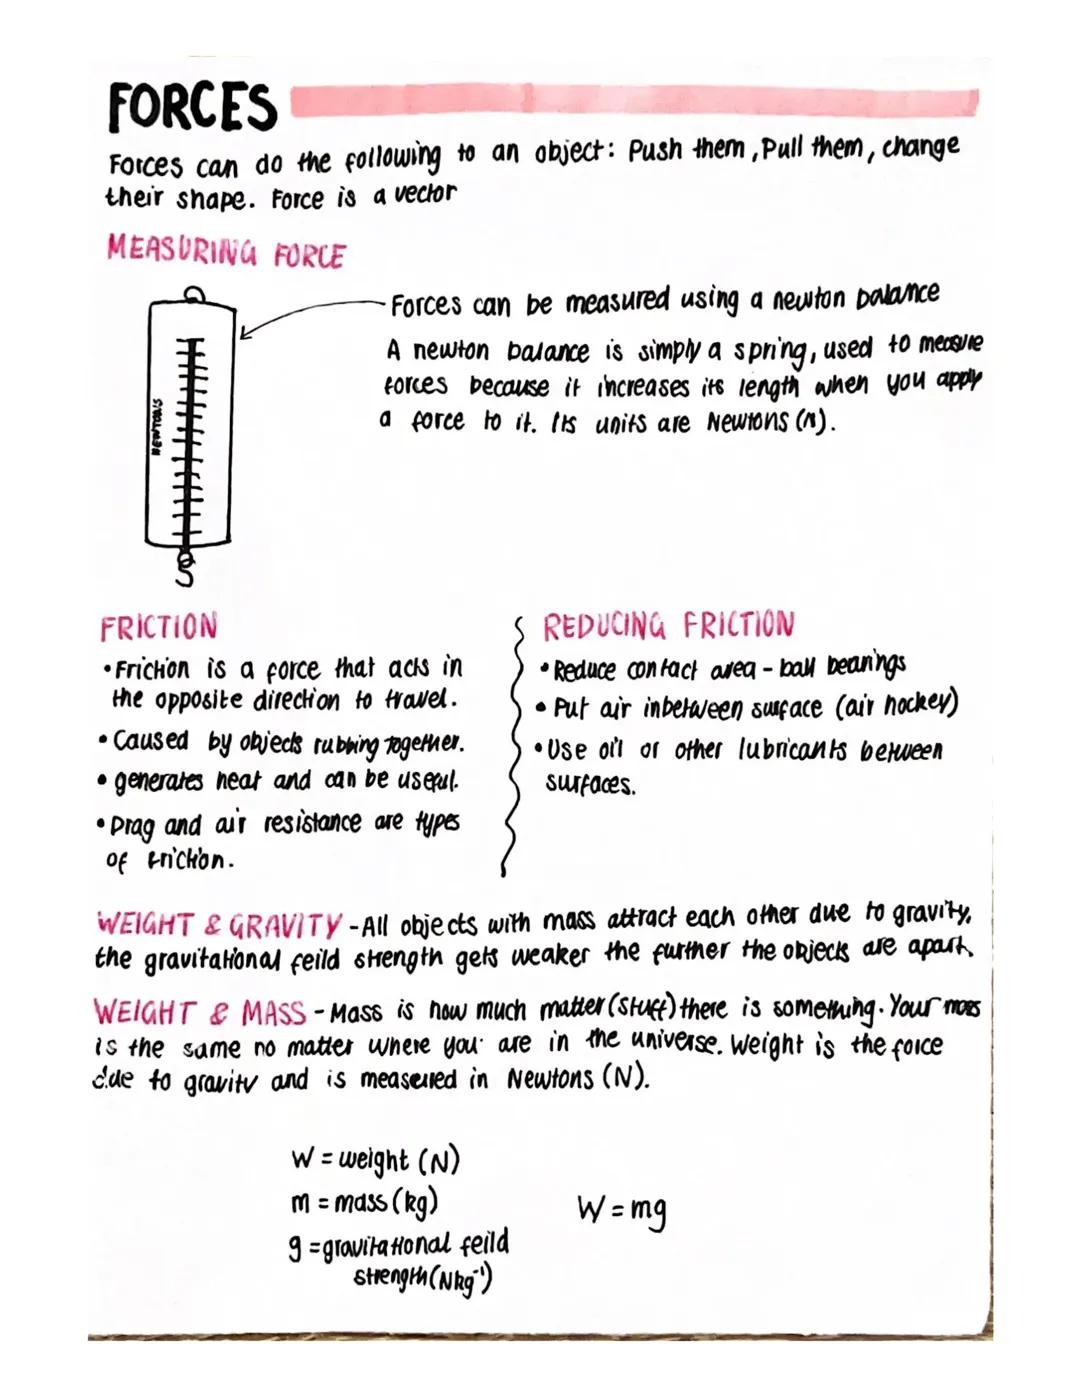 FORCES
Forces can do the following to an object: Push them, Pull them, change
their shape. Force is a vector
MEASURING FORCE
Forces can be measured using a newton balance
A newton balance is simply a spring, used to measure
forces because it increases its length when you apply
a force to it. Its units are Newtons (N).
NEWTONS
FRICTION
• Friction is a force that acts in
the opposite direction to travel.
• Caused by objects rubbing together.
• generates heat and can be useful.
• Drag and air resistance are types
of friction.
REDUCING FRICTION
• Reduce contact area - ball bearings
• Put air inbetween surface (air hockey)
• Use oil or other lubricants between
surfaces.
WEIGHT & GRAVITY - All objects with mass attract each other due to gravity,
the gravitational feild strength gets weaker the further the objects are apart.
WEIGHT & MASS - Mass is how much matter (stuff) there is something. Your mass
is the same no matter where you are in the universe. Weight is the force
due to gravity and is measured in Newtons (N).
W = weight (N)
m = mass (kg)
g = gravitational feild
strength (Nkg⁻¹)
W = mg